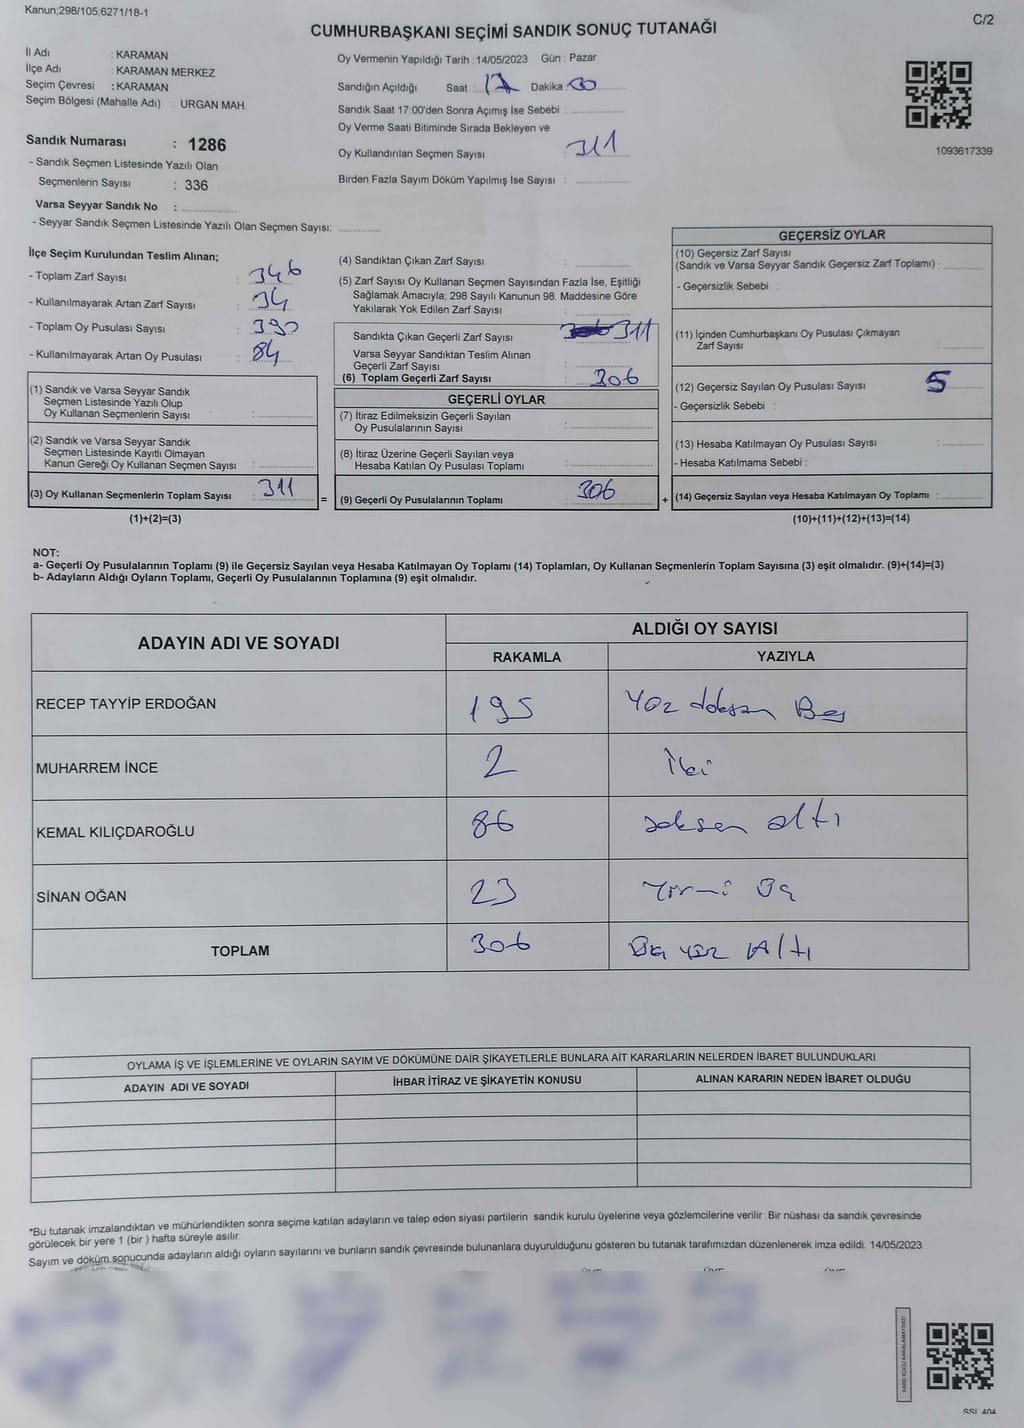 Kanun;298/105;6271/18-1
C/2
CUMHURBAŞKANI SEÇİMİ SANDIK SONUÇ TUTANAĞI
İl Adı : KARAMAN
İlçe Adı : KARAMAN MERKEZ
Seçim Çevresi : KARAMAN
Seçim Bölgesi (Mahalle Adı) : URGAN MAH.
Oy Vermenin Yapıldığı Tarih : 14/05/2023 Gün : Pazar
Sandığın Açıldığı Saat : 17 Dakika :
Sandık Saat 17:00'den Sonra Açımış İse Sebebi :
Oy Verme Saati Bitiminde Sırada Bekleyen ve
Oy Kullandırılan Seçmen Sayısı : 311
Birden Fazla Sayım Döküm Yapılmış İse Sayısı :
1093617339
Sandık Numarası : 1286
- Sandık Seçmen Listesinde Yazılı Olan
Seçmenlerin Sayısı : 336
Varsa Seyyar Sandık No :
- Seyyar Sandık Seçmen Listesinde Yazılı Olan Seçmen Sayısı:
İlçe Seçim Kurulundan Teslim Alınan;
- Toplam Zarf Sayısı : 346
- Kullanılmayarak Artan Zarf Sayısı : 34
- Toplam Oy Pusulası Sayısı : 390
- Kullanılmayarak Artan Oy Pusulası : 84
(1) Sandık ve Varsa Seyyar Sandık
Seçmen Listesinde Yazılı Olup
Oy Kullanan Seçmenlerin Sayısı :
(2) Sandık ve Varsa Seyyar Sandık
Seçmen Listesinde Kayıtlı Olmayan
Kanun Gereği Oy Kullanan Seçmen Sayısı :
(3) Oy Kullanan Seçmenlerin Toplam Sayısı : 311
(1)+(2)=(3)
=
(4) Sandıktan Çıkan Zarf Sayısı :
(5) Zarf Sayısı Oy Kullanan Seçmen Sayısından Fazla İse, Eşitliği
Sağlamak Amacıyla; 298 Sayılı Kanunun 98. Maddesine Göre
Yakılarak Yok Edilen Zarf Sayısı :
Sandıkta Çıkan Geçerli Zarf Sayısı : 311
Varsa Seyyar Sandıktan Teslim Alınan
Geçerli Zarf Sayısı :
(6) Toplam Geçerli Zarf Sayısı : 306
GEÇERLİ OYLAR
(7) İtiraz Edilmeksizin Geçerli Sayılan
Oy Pusulalarının Sayısı :
(8) İtiraz Üzerine Geçerli Sayılan veya
Hesaba Katılan Oy Pusulası Toplamı :
(9) Geçerli Oy Pusulalarının Toplamı : 306
+
GEÇERSİZ OYLAR
(10) Geçersiz Zarf Sayısı
(Sandık ve Varsa Seyyar Sandık Geçersiz Zarf Toplamı) :
- Geçersizlik Sebebi :
(11) İçinden Cumhurbaşkanı Oy Pusulası Çıkmayan
Zarf Sayısı :
(12) Geçersiz Sayılan Oy Pusulası Sayısı : 5
- Geçersizlik Sebebi :
(13) Hesaba Katılmayan Oy Pusulası Sayısı :
- Hesaba Katılmama Sebebi :
(14) Geçersiz Sayılan veya Hesaba Katılmayan Oy Toplamı :
(10)+(11)+(12)+(13)=(14)
NOT:
a- Geçerli Oy Pusulalarının Toplamı (9) ile Geçersiz Sayılan veya Hesaba Katılmayan Oy Toplamı (14) Toplamları, Oy Kullanan Seçmenlerin Toplam Sayısına (3) eşit olmalıdır. (9)+(14)=(3)
b- Adayların Aldığı Oyların Toplamı, Geçerli Oy Pusulalarının Toplamına (9) eşit olmalıdır.
ADAYIN ADI VE SOYADI
ALDIĞI OY SAYISI
RAKAMLA YAZIYLA
RECEP TAYYİP ERDOĞAN 195 Yüz doksan Beş
MUHARREM İNCE 2 İki
KEMAL KILIÇDAROĞLU 86 Seksen altı
SİNAN OĞAN 23 Yirmi Üç
TOPLAM 306 Üç yüz Altı
OYLAMA İŞ VE İŞLEMLERİNE VE OYLARIN SAYIM VE DÖKÜMÜNE DAİR ŞİKAYETLERLE BUNLARA AİT KARARLARIN NELERDEN İBARET BULUNDUKLARI
ADAYIN ADI VE SOYADI İHBAR İTİRAZ VE ŞİKAYETİN KONUSU ALINAN KARARIN NEDEN İBARET OLDUĞU
*Bu tutanak imzalandıktan ve mühürlendikten sonra seçime katılan adayların ve talep eden siyasi partilerin sandık kurulu üyelerine veya gözlemcilerine verilir .Bir nüshası da sandık çevresinde
görülecek bir yere 1 (bir ) hafta süreyle asılır.
Sayım ve döküm sonucunda adayların aldığı oyların sayılarını ve bunların sandık çevresinde bulunanlara duyurulduğunu gösteren bu tutanak tarafımızdan düzenlenerek imza edildi. 14/05/2023
KARE KODU KARALAMAYINIZ!